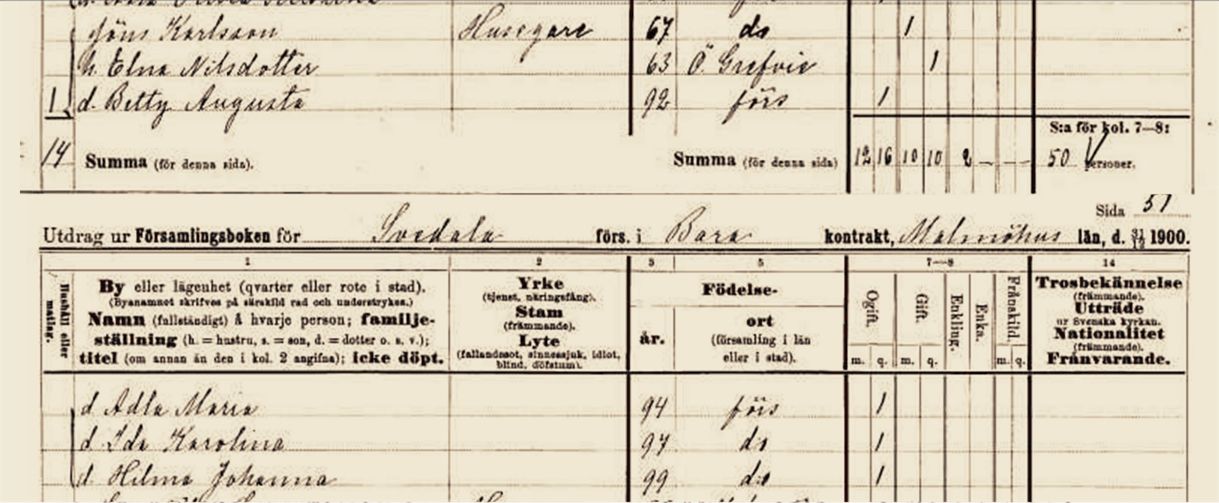 Jöns Karlsson Husegare 67 do 1
h. Elna Nilsdotter 63 Ö. Grefvie 1
1 d. Betty Augusta 92 förs 1
S:a för kol. 7—8:
14 Summa (för denna sida). Summa (för denna sida) 12 16 10 10 2 — — — 50 personer.
Sida 51
Utdrag ur Församlingsboken för Svedala förs. i Bara kontrakt, Malmöhus län, d. 31/12 1900.
1 2 3 5 7—8 14
Hushåll eller matlag.
By eller lägenhet (qvarter eller rote i stad).
(Byanamnet skrifves på särskild rad och understrykes.)
Namn (fullständigt) å hvarje person; familje-
ställning (h. = hustru, s. = son, d. = dotter o. s. v.);
titel (om annan än den i kol. 2 angifna); icke döpt.
Yrke
(tjenst, näringsfång).
Stam
(främmande).
Lyte
(fallandesot, sinnessjuk, idiot,
blind, döfstum).
år.
Födelse-
ort
(församling i län
eller i stad).
Ogift.
Gift.
Enkling.
Enka.
Frånskild.
m. q. m. q. m. q.
Trosbekännelse
(främmande).
Utträde
ur Svenska kyrkan.
Nationalitet
(främmande).
Frånvarande.
d. Adla Maria 94 förs 1
d. Ida Karolina 97 do 1
d. Hilma Johanna 99 do 1